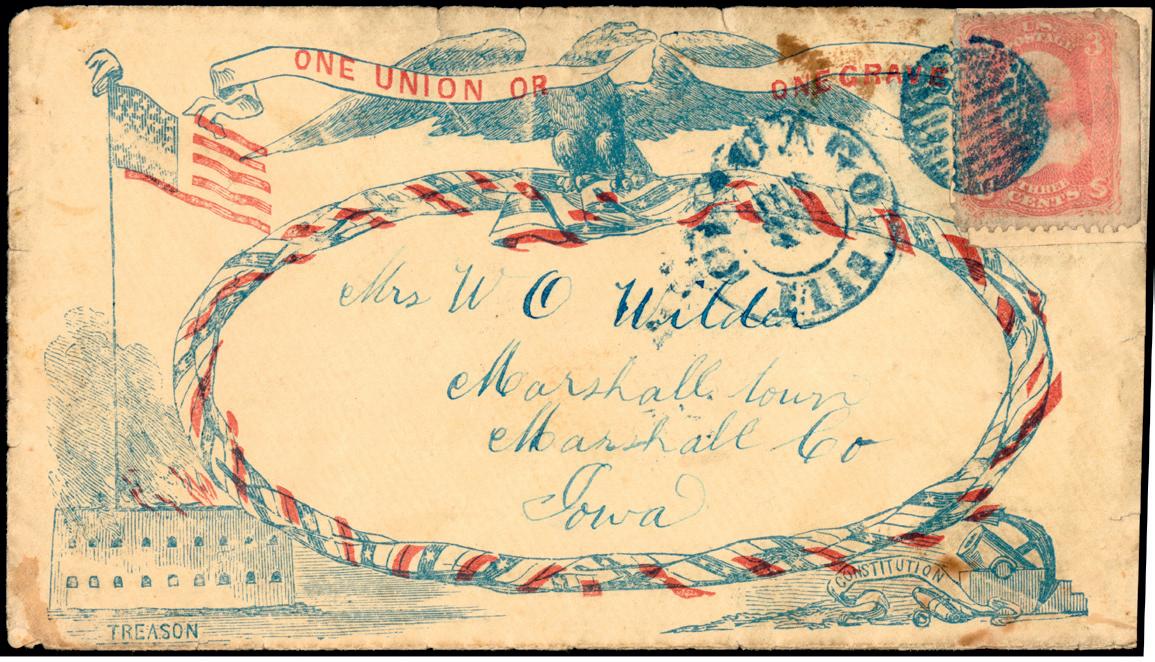 ONE UNION OR ONE GRAVE
U.S. POSTAGE
3
THREE CENTS
CHICAGO
Ill
Mrs W O Wilder
Marshall town
Marshall Co
Iowa
CONSTITUTION
TREASON